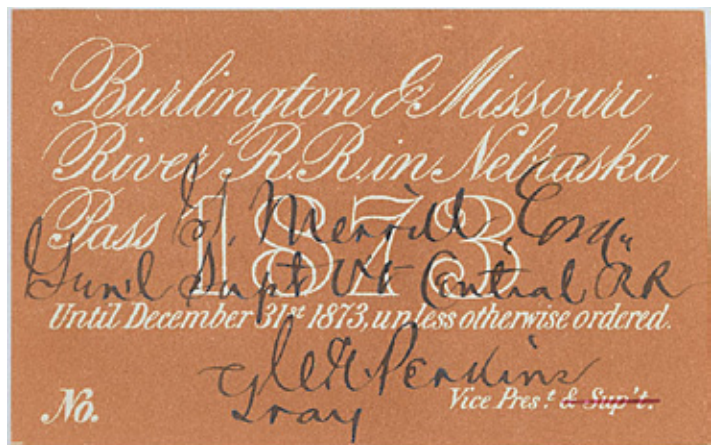 Burlington & Missouri
River R.R. in Nebraska
Pass G. Merrill, Esq.
1873
Gen'l Supt Vt Central RR
Until December 31st 1873, unless otherwise ordered.
Perkins
Gray
No.
Vice Pres.t & Sup't.